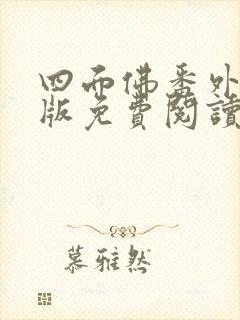 四而佛番外
版免費閱讀
慕雅然